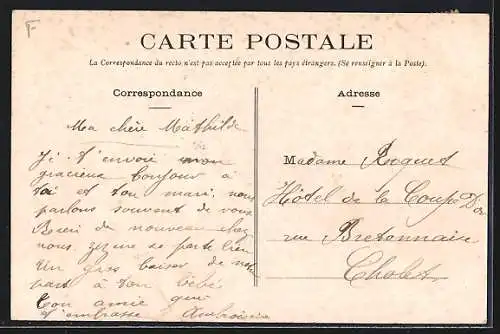 F
CARTE POSTALE
La Correspondance du recto n'est pas acceptée par tous les pays étrangers. (Se renseigner à la Poste).
Correspondance
Ma chère Mathilde
Je t'envoie mon
gracieux bonjour à
toi et ton mari, nous
parlons souvent de vous
de nouveau chez
nous se porte bien
Un gros baiser de notre
part à ton bébé
Ton amie qui
t'embrasse Ambroisine
Adresse
Madame Roquet
Hôtel de la Coupe D'or
rue Bretonnaise
Cholet